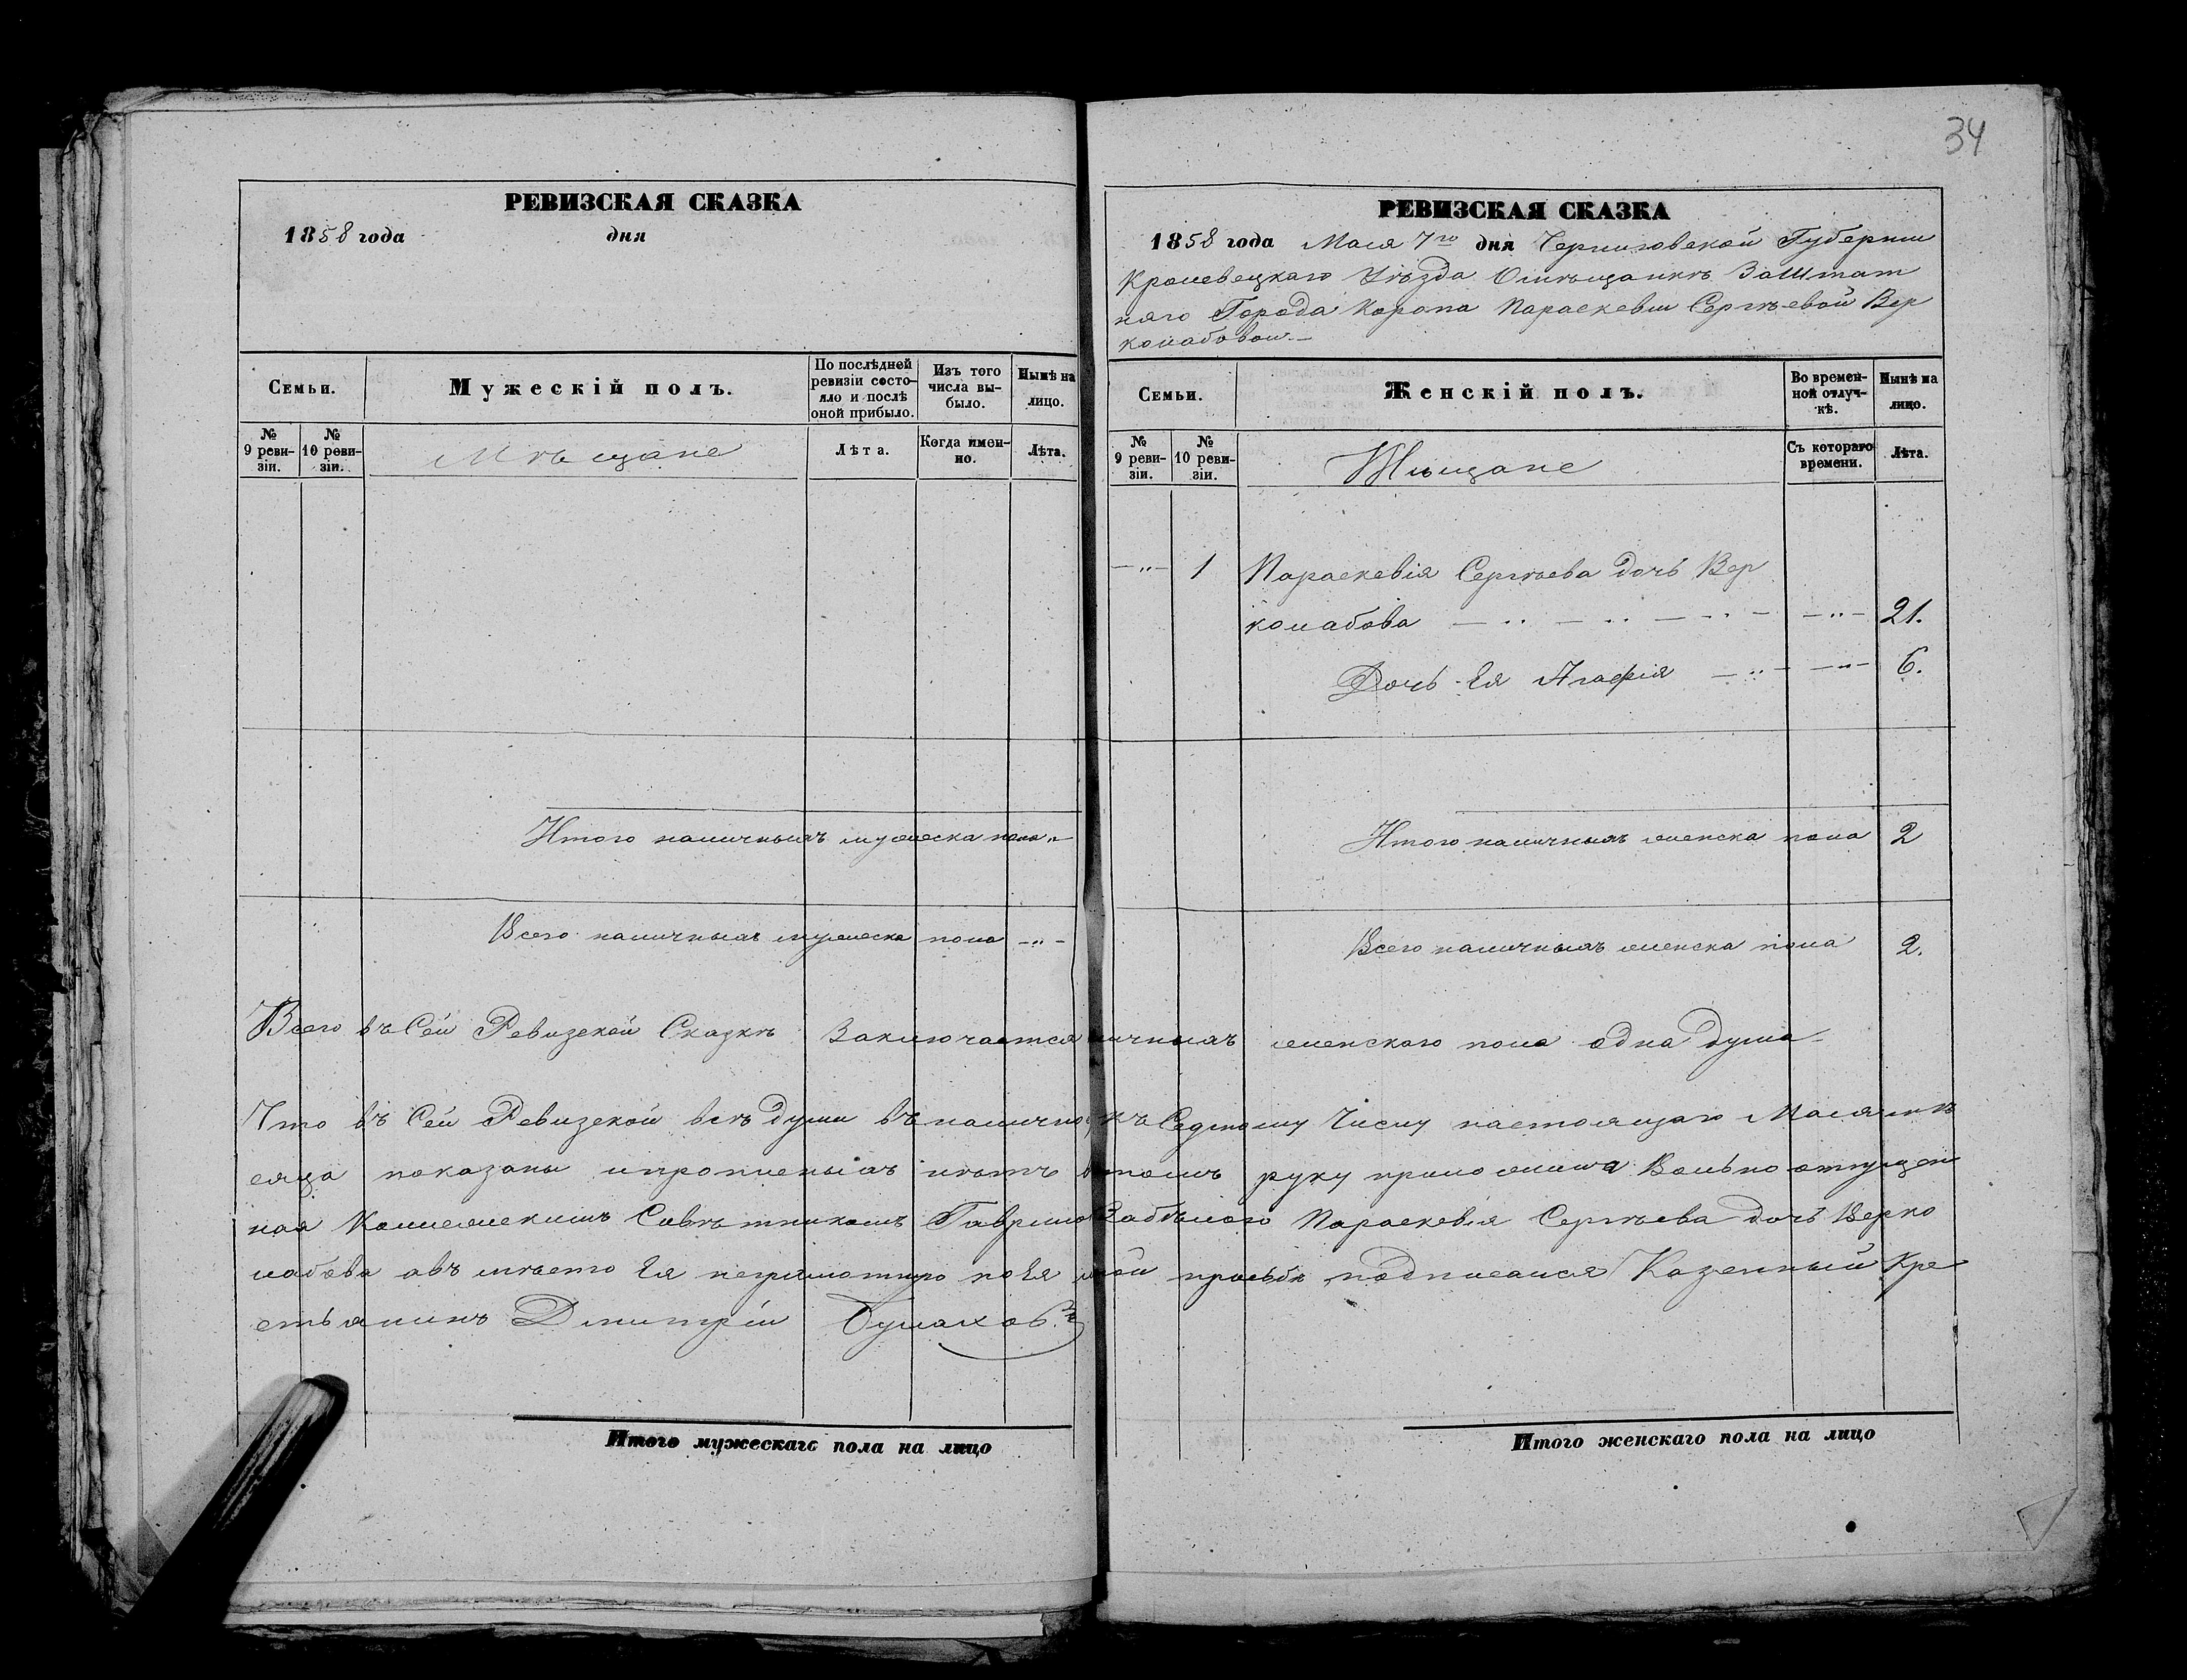 34
РЕВИЗСКАЯ СКАЗКА
1858 года дня
Семьи.
Мужескій полъ.
По послѣдней ревизіи состояло и послѣ оной прибыло.
Изъ того числа выбыло.
Нынѣ на лицо.
№ 9 ревизіи.
№ 10 ревизіи.
Мѣщане
Лѣта.
Когда именно.
Лѣта.
Итого наличныхъ мужеска пола "
Всего наличныхъ мужеска пола - " -
РЕВИЗСКАЯ СКАЗКА
1858 года Маія 7го дня Черниговской Губерніи
Кролевецкаго Уѣзда Омѣщанкѣ Заштат
наго Города Коропа Параскевіи Сергѣевой Вер
колабовои. -
Семьи.
Женскій полъ.
Во временной отлучкѣ.
Нынѣ на лицо.
№ 9 ревизіи.
№ 10 ревизіи.
Мѣщане
Съ котораго времени.
Лѣта.
- " - 1 Параскевія Сергѣева дочь Вер
колабова - " - " - " - - " - 21.
Дочь Ея Агафія - " - - " - 6.
Итого наличныхъ женска пола 2
Всего наличныхъ женска пола 2.
Всего въ Сей Ревизской Сказкѣ Заключается личныхъ женскаго пола одна душа -
Что въ Сей Ревизской всѣ души въ налично къ Седмому Числу настоящаго Маія мѣ
сяца показаны ипрописныхъ нѣтъ втомъ руку приложила Вольно отпущен
ная Коллежскимъ Совѣтникомъ Гаврило Забѣлого Параскевія Сергѣева дочь Верко
лабова авъ мѣсто Ея неграмотную поЕя мной прозьбѣ подписался Казенный Кре
стьянинъ Дмитрій
Итого мужескаго пола на лицо
Итого женскаго пола на лицо